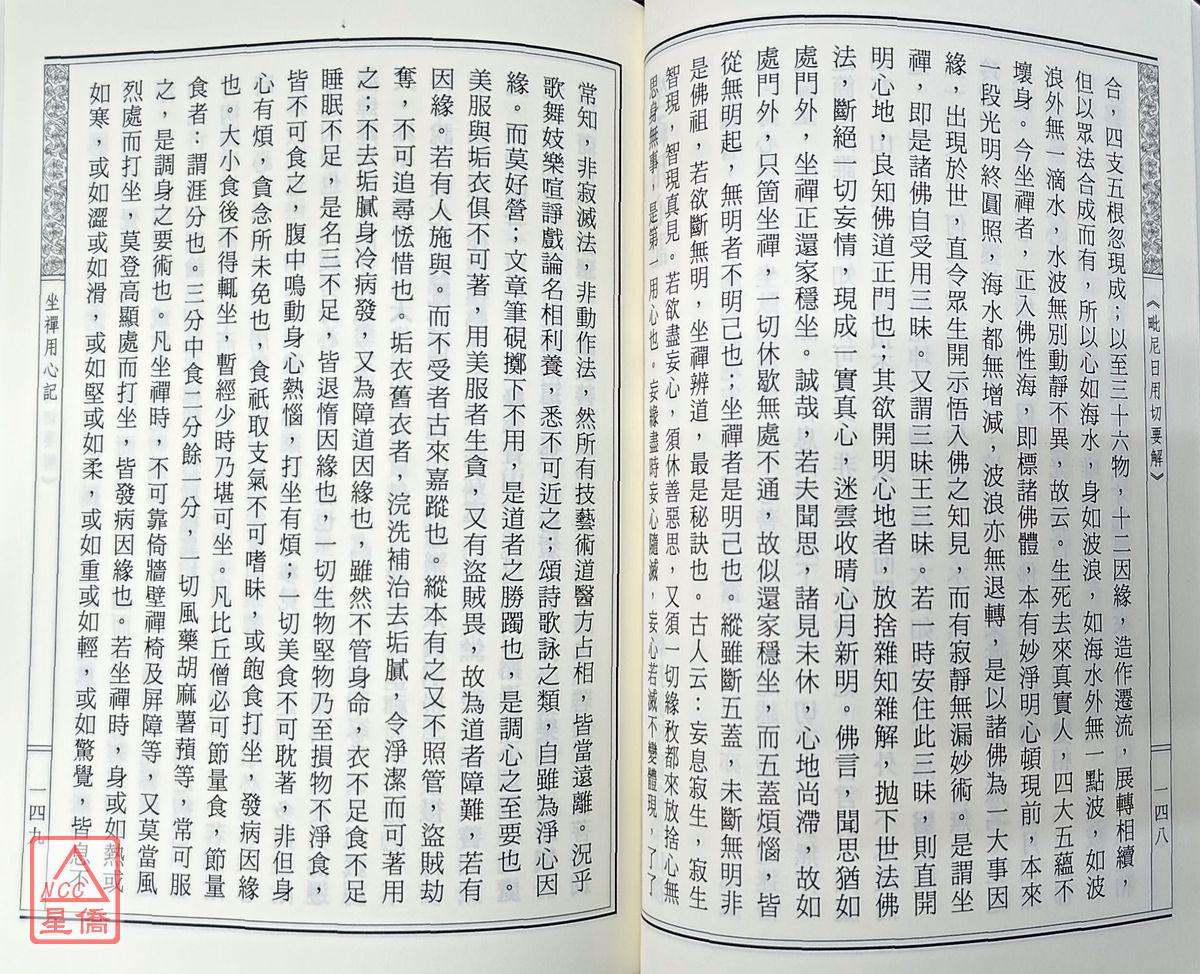 《毗尼日用切要解》
一四八
合，四支五根忽現成；以至三十六物，十二因緣，造作遷流，展轉相續，
但以眾法合成而有，所以心如海水，身如波浪，如海水外無一點波，如波
浪外無一滴水，水波無別動靜不異，故云。生死去來真實人，四大五蘊不
壞身。今坐禪者，正入佛性海，即標諸佛體，本有妙淨明心頓現前，本來
一段光明終圓照，海水都無增減，波浪亦無退轉，是以諸佛為一大事因
緣，出現於世，直令眾生開示悟入佛之知見，而有寂靜無漏妙術。是謂坐
禪，即是諸佛自受用三昧。又謂三昧王三昧。人若一時安住此三昧，則直開
明心地，良知佛道正門也；其欲開明心地者，放捨雜知雜解，拋下世法佛
法，斷絕一切妄情，現成一實真心，迷雲收晴心月新明。佛言，聞思猶如
處門外，坐禪正還家穩坐。誠哉，若夫聞思，諸見未休，心地尚滯，故如
處門外，只箇坐禪，一切休歇無處不通，故似還家穩坐，而五蓋煩惱，皆
從無明起，無明者不明己也；坐禪者是明己也。縱雖斷五蓋，未斷無明非
是佛祖，若欲斷無明，坐禪辨道，最是秘訣也。古人云：妄息寂生，寂生
智現，智現真見。若欲盡妄心，須休善惡思，又須一切緣務都來放捨心無
思身無事，是第一用心也。妄緣盡時妄心隨滅，妄心若滅不變體現，了了
常知，非寂滅法，非動作法，然所有技藝術道醫方占相，皆當遠離。況乎
歌舞妓樂喧諍戲論名相利養，悉不可近之；頌詩歌詠之類，自雖為淨心因
緣。而莫好營；文章筆硯擲下不用，是道者之勝躅也，是調心之至要也。
美服與垢衣俱不可著，用美服者生貪，又有盜賊畏，故為道者障難，若有
因緣。若有人施與。而不受者古來嘉蹤也。縱本有之又不照管，盜賊劫
奪，不可追尋恡惜也。垢衣舊衣者，浣洗補治去垢膩，令淨潔而可著用
之；不去垢膩身冷病發，又為障道因緣也，雖然不管身命，衣不足食不足
睡眠不足，是名三不足，皆退惰因緣也，一切生物堅物乃至損物不淨食，
皆不可食之，腹中鳴動身心熱惱，打坐有煩；一切美食不可耽著，非但身
心有煩，貪念所未免也，食祇取支氣不可嗜味，或飽食打坐，發病因緣
也。大小食後不得輒坐，暫經少時乃堪可坐。凡比丘僧必可節量食，節量
食者：謂涯分也。三分中食二分餘一分，一切風藥胡麻薯蕷等，常可服
之，是調身之要術也。凡坐禪時，不可靠倚牆壁禪椅及屏障等，又莫當風
烈處而打坐，莫登高顯處而打坐，皆發病因緣也。若坐禪時，身或如熱或
如寒，或如澀或如滑，或如堅或如柔，或如重或如輕，或如驚覺，皆息不
坐禪用心記
一四九
NCC
星僑